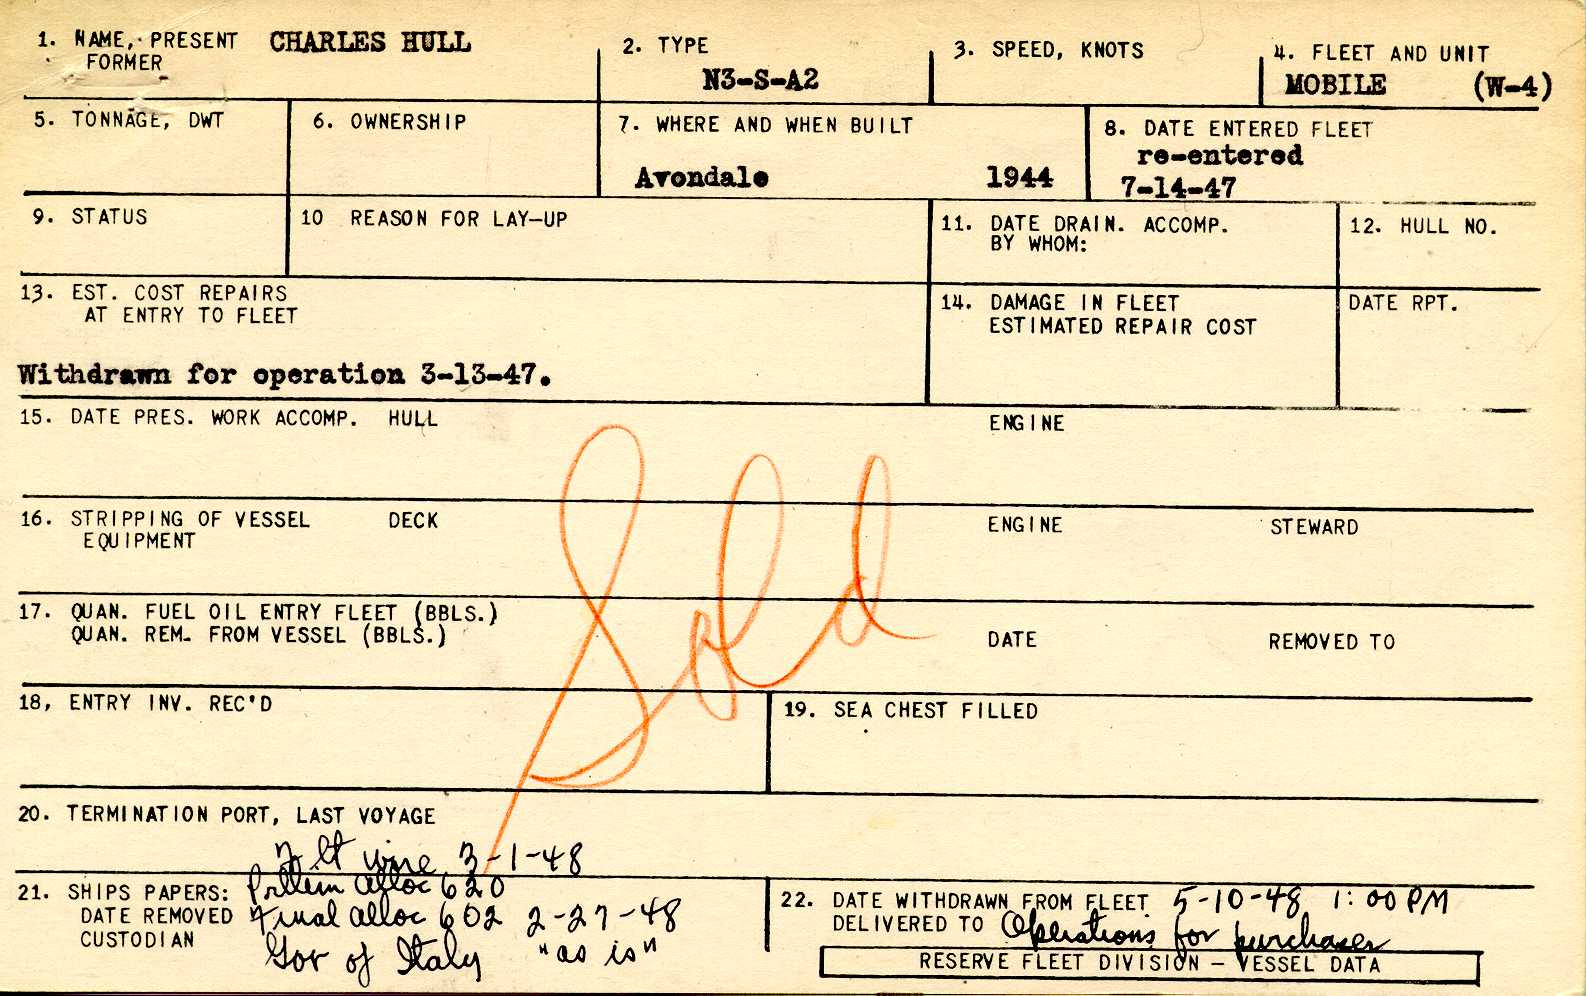 1. NAME, PRESENT CHARLES HULL
FORMER
2. TYPE
N3-S-A2
3. SPEED, KNOTS
4. FLEET AND UNIT
MOBILE (W-4)
5. TONNAGE, DWT
6. OWNERSHIP
7. WHERE AND WHEN BUILT
Avondale 1944
8. DATE ENTERED FLEET
re-entered
7-14-47
9. STATUS
10 REASON FOR LAY-UP
11. DATE DRAIN. ACCOMP.
BY WHOM:
12. HULL NO.
13. EST. COST REPAIRS
AT ENTRY TO FLEET
Withdrawn for operation 3-13-47.
14. DAMAGE IN FLEET
ESTIMATED REPAIR COST
DATE RPT.
15. DATE PRES. WORK ACCOMP. HULL ENGINE
Sold
16. STRIPPING OF VESSEL DECK ENGINE STEWARD
EQUIPMENT
17. QUAN. FUEL OIL ENTRY FLEET (BBLS.)
QUAN. REM. FROM VESSEL (BBLS.) DATE REMOVED TO
18, ENTRY INV. REC'D
19. SEA CHEST FILLED
20. TERMINATION PORT, LAST VOYAGE
wire 3-1-48
21. SHIPS PAPERS: alloc 620
DATE REMOVED Final alloc 602 2-27-48
CUSTODIAN Gov of Italy "as is"
22. DATE WITHDRAWN FROM FLEET 5-10-48 1:00 PM
DELIVERED TO Operations for purchaser
RESERVE FLEET DIVISION - VESSEL DATA